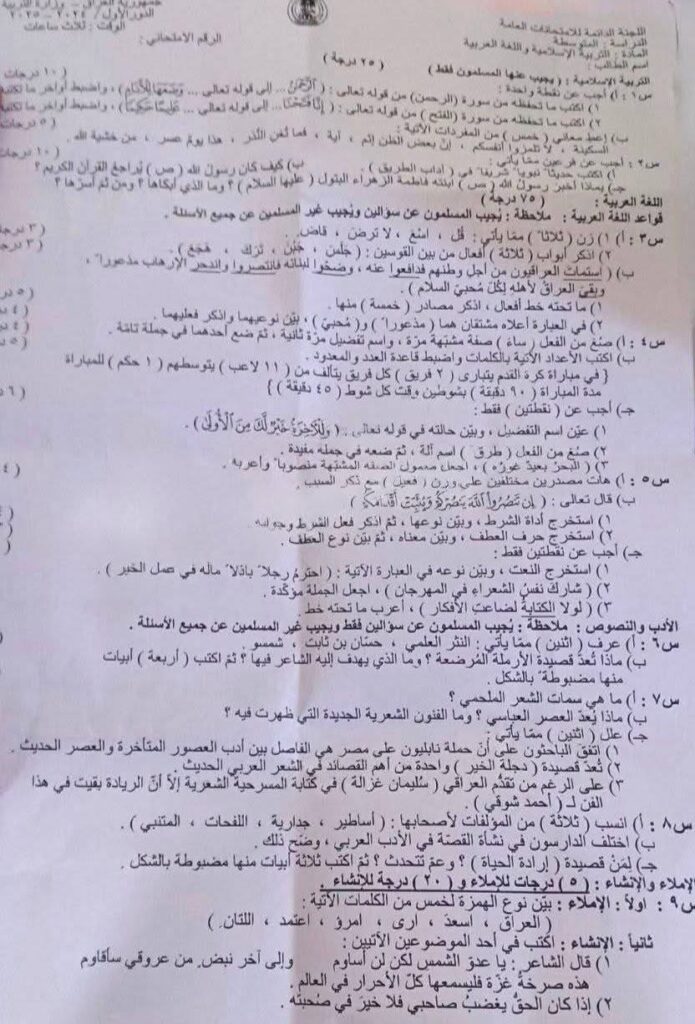 جمهورية العراق - وزارة التربية
اللجنة الدائمة للامتحانات العامة
الدور الأول / ٢٠٢٤ - ٢٠٢٥
الدراسة : المتوسطة
الوقت : ثلاث ساعات
المادة : التربية الإسلامية واللغة العربية
الرقم الامتحاني :
اسم الطالب :
التربية الإسلامية : ( يجيب عنها المسلمون فقط ) ( ٢٥ درجة )
س١ : أ) أجب عن نقطة واحدة : ( ١٠ درجات
١) اكتب ما تحفظه من سورة (الرحمن) من قوله تعالى : ( الرَّحْمَنُ ... إلى قوله تعالى ... وَضَعَهَا لِلْأَنَامِ ) ، واضبط أواخر ما تكتبه
٢) اكتب ما تحفظه من سورة (الفتح) من قوله تعالى : ( إِنَّا فَتَحْنَا ... إلى قوله تعالى ... عَلِيمًا حَكِيمًا ) ، واضبط أواخر ما تكتبه
ب) اعط معاني ( خمس ) من المفردات الآتية : ( ٥ درجات
السكينة ، لا تلمزوا أنفسكم ، إنّ بعض الظن إثم ، آية ، فما تغن النُذر ، هذا يومٌ عسر ، من خشية الله .
س٢ : أجب عن فرعين ممّا يأتي : ( ١٠ درجات
أ) اكتب حديثاً نبوياً شريفاً في ( آداب الطريق ) . ب) كيف كان رسول الله ( ص ) يُراجع القرآن الكريم ؟
جـ) بماذا أخبر رسول الله ( ص ) ابنته فاطمة الزهراء البتول ( عليها السلام ) ؟ وما الذي أبكاها ؟ ومن ثم أسرّها ؟
اللغة العربية : ( ٧٥ درجة )
قواعد اللغة العربية : ملاحظة : يُجيب المسلمون عن سؤالين ويُجيب غير المسلمين عن جميع الأسئلة .
س٣ : أ) ١) زن ( ثلاثاً ) ممّا يأتي : قُل ، اسْعَ ، لا ترضَ ، قاضٍ . ( ٣ درجا
٢) اذكر أبواب ( ثلاثة ) أفعال من بين القوسين : ( جلسَ ، جَبُنَ ، تركَ ، هَجَعَ ) . ( ٣ درجـ
ب) ( استمات العراقيون من أجل وطنهم فدافعوا عنه ، وضحّوا لبنائه فانتصروا واندحر الإرهاب مذعوراً ،
وبقيَ العراقُ لأهلهِ لِكُلّ مُحبيّ السلام ) .
١) ما تحته خط أفعال ، اذكر مصادر ( خمسة ) منها . ( ٥ در
٢) في العبارة أعلاه مشتقان هما ( مذعوراً ) و( مُحبيّ ) ، بيّن نوعيهما واذكر فعليهما . ( ٤ د
س٤ : أ) صُغ من الفعل ( ساءَ ) صفة مشبّهة مرّة ، واسم تفضيل مرّة ثانية ، ثمّ ضع أحدهما في جملة تامّة . ( ٤ د
ب) اكتب الأعداد الآتية بالكلمات واضبط قاعدة العدد والمعدود . ( ٥
{ في مباراة كرة القدم يتبارى ( ٢ فريق ) كل فريق يتألف من ( ١١ لاعب ) يتوسطهم ( ١ حكم ) للمباراة
مدة المباراة ( ٩٠ دقيقة ) بشوطين وقت كل شوط ( ٤٥ دقيقة ) }
جـ) أجب عن ( نقطتين ) فقط : ( ٦ د
١) عيّن اسم التفضيل ، وبيّن حالته في قوله تعالى : ( وَلَلْآخِرَةُ خَيْرٌ لَّكَ مِنَ الْأُولَى ) .
٢) صُغ من الفعل ( طرق ) اسم آلة ، ثمّ ضعه في جملة مفيدة .
٣) ( البحرُ بعيدٌ غورُه ) ، اجعل معمول الصفة المشبّهة منصوباً وأعربه .
س٥ : أ) هات مصدرين مختلفين على وزن ( فعيل ) مع ذكر السبب . ( ٤
ب) قال تعالى : ( إِن تَنصُرُوا اللَّهَ يَنصُرْكُمْ وَيُثَبِّتْ أَقْدَامَكُمْ )
١) استخرج أداة الشرط ، وبيّن نوعها ، ثمّ اذكر فعل الشرط وجوابه .
٢) استخرج حرف العطف ، وبيّن معناه ، ثمّ بيّن نوع العطف .
جـ) أجب عن نقطتين فقط :
١) استخرج النعت ، وبيّن نوعه في العبارة الآتية : ( احترمُ رجلاً باذلاً ماله في عمل الخير ) .
٢) ( شارك نفسُ الشعراءِ في المهرجان ) ، اجعل الجملة مؤكّدة .
٣) ( لولا الكتابةُ لضاعت الأفكار ) ، أعرب ما تحته خط .
الأدب والنصوص : ملاحظة : يُجيب المسلمون عن سؤالين فقط ويجيب غير المسلمين عن جميع الأسئلة .
س٦ : أ) عرف ( اثنين ) ممّا يأتي : النثر العلمي ، حسّان بن ثابت ، شمسو .
ب) ماذا تُعدّ قصيدة الأرملة المُرضعة ؟ وما الذي يهدف إليه الشاعر فيها ؟ ثمّ اكتب ( أربعة ) أبيات
منها مضبوطة بالشكل .
س٧ : أ) ما هي سمات الشعر الملحمي ؟
ب) ماذا يُعدّ العصر العباسي ؟ وما الفنون الشعرية الجديدة التي ظهرت فيه ؟
جـ) علل ( اثنين ) ممّا يأتي :
١) اتفق الباحثون على أنّ حملة نابليون على مصر هي الفاصل بين أدب العصور المتأخرة والعصر الحديث .
٢) تُعدّ قصيدة ( دجلة الخير ) واحدة من أهم القصائد في الشعر العربي الحديث
٣) على الرغم من تقدّم العراقي ( سُليمان غزالة ) في كتابة المسرحية الشعرية إلاّ أنّ الريادة بقيت في هذا
الفن لـ ( أحمد شوقي ) .
س٨ : أ) انسب ( ثلاثة ) من المؤلفات لأصحابها : ( أساطير ، جدارية ، اللفحات ، المتنبي ) .
ب) اختلف الدارسون في نشأة القصّة في الأدب العربي ، وضّح ذلك .
جـ) لِمَنْ قصيدة ( إرادة الحياة ) ؟ وعمّ تتحدث ؟ ثمّ اكتب ثلاثة أبيات منها مضبوطة بالشكل .
الإملاء والإنشاء : ( ٥ ) درجات للإملاء و ( ٢٠ ) درجة للإنشاء .
س٩ : أولاً : الإملاء : بيّن نوع الهمزة لخمس من الكلمات الآتية :
( العراق ، اسعدَ ، أرى ، امرؤ ، اعتمد ، اللتان . )
ثانياً : الإنشاء : اكتب في أحد الموضوعين الآتيين :
١) قال الشاعر : يا عدوّ الشمس لكن لن أساوم وإلى آخر نبض من عروقي سأقاوم
هذه صرخةُ غزّة فليسمعها كلّ الأحرار في العالم .
٢) إذا كان الحقُّ يغضبُ صاحبي فلا خيرَ في صُحبته .